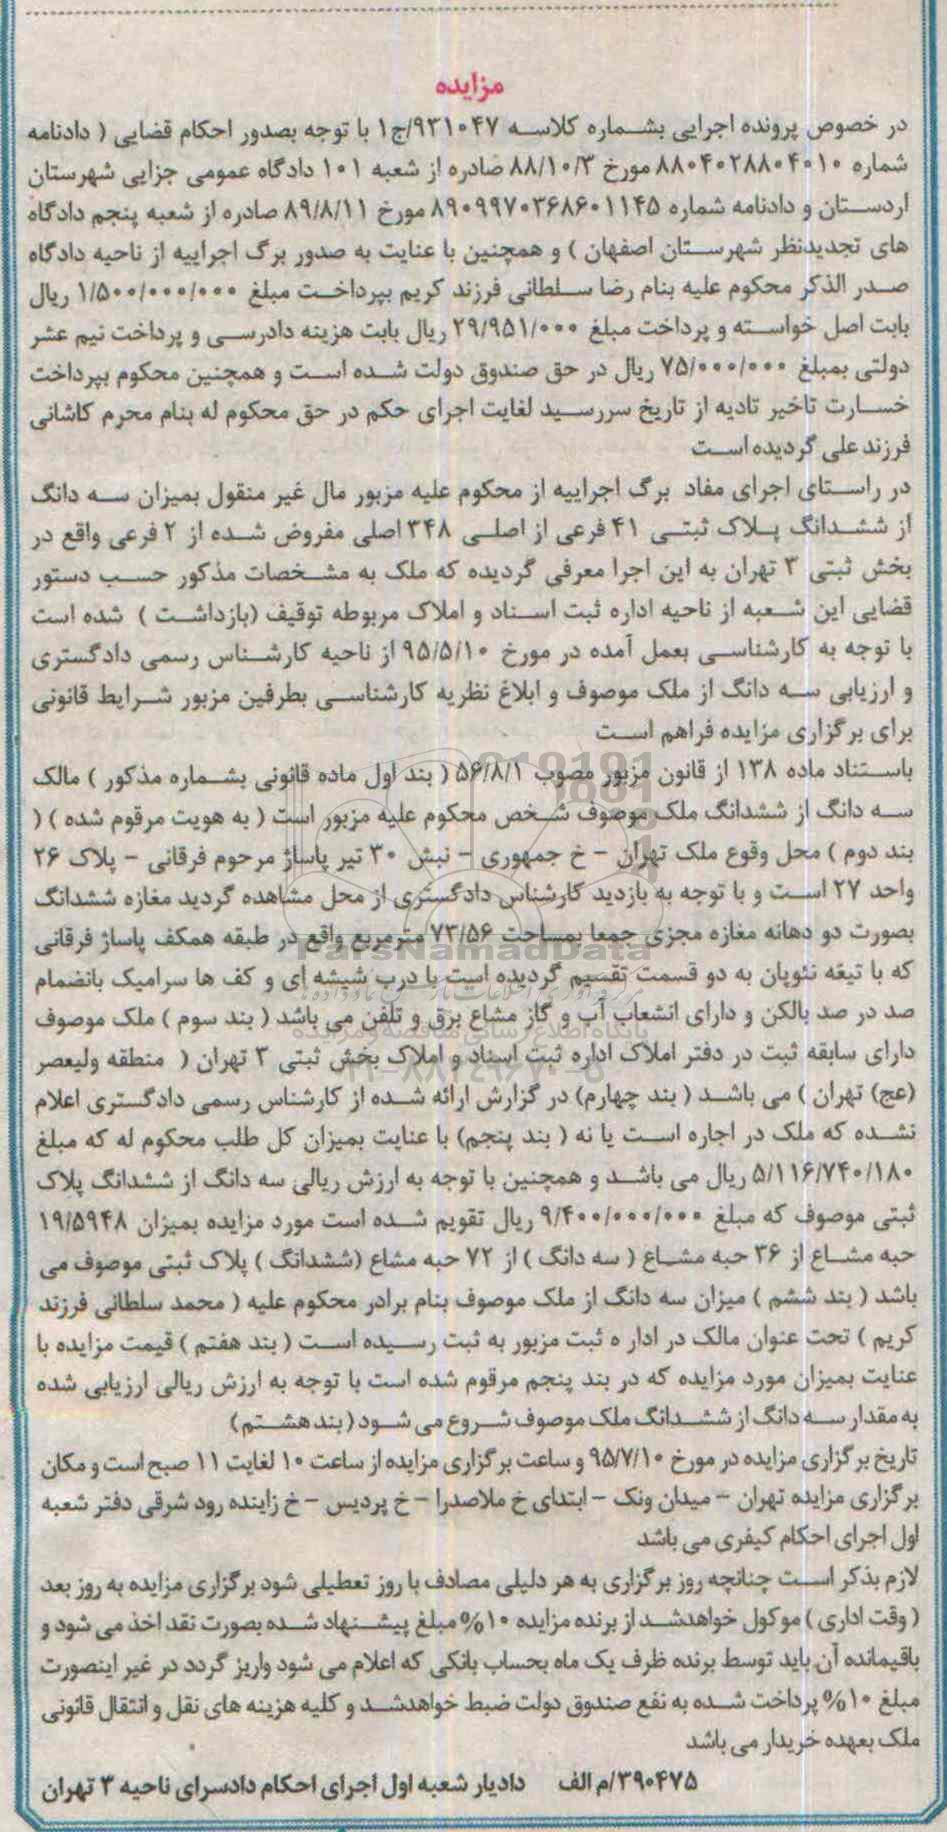 مزایده
در خصوص پرونده اجرایی بشماره کلاسه ۹۳۱۰۴۷/ج۱ با توجه بصدور احکام قضایی ( دادنامه
شماره ۸۸۰۴۰۲۸۸۰۴۰۱۰ مورخ ۸۸/۱۰/۳ صادره از شعبه ۱۰۱ دادگاه عمومی جزایی شهرستان
اردستان و دادنامه شماره ۸۹۰۹۹۷۰۳۶۸۶۰۱۱۴۵ مورخ ۸۹/۸/۱۱ صادره از شعبه پنجم دادگاه
های تجدیدنظر شهرستان اصفهان ) و همچنین با عنایت به صدور برگ اجراییه از ناحیه دادگاه
صدر الذکر محکوم علیه بنام رضا سلطانی فرزند کریم بپرداخت مبلغ ۱/۵۰۰/۰۰۰/۰۰۰ ریال
بابت اصل خواسته و پرداخت مبلغ ۲۹/۹۵۱/۰۰۰ ریال بابت هزینه دادرسی و پرداخت نیم عشر
دولتی بمبلغ ۷۵/۰۰۰/۰۰۰ ریال در حق صندوق دولت شده است و همچنین محکوم بپرداخت
خسارت تاخیر تادیه از تاریخ سررسید لغایت اجرای حکم در حق محکوم له بنام محرم کاشانی
فرزند علی گردیده است
در راستای اجرای مفاد برگ اجراییه از محکوم علیه مزبور مال غیر منقول بمیزان سه دانگ
از ششدانگ پلاک ثبتی ۴۱ فرعی از اصلی ۳۴۸ اصلی مفروض شده از ۲ فرعی واقع در
بخش ثبتی ۳ تهران به این اجرا معرفی گردیده که ملک به مشخصات مذکور حسب دستور
قضایی این شعبه از ناحیه اداره ثبت اسناد و املاک مربوطه توقیف (بازداشت ) شده است
با توجه به کارشناسی بعمل آمده در مورخ ۹۵/۵/۱۰ از ناحیه کارشناس رسمی دادگستری
و ارزیابی سه دانگ از ملک موصوف و ابلاغ نظریه کارشناسی بطرفین مزبور شرایط قانونی
برای برگزاری مزایده فراهم است
باستناد ماده ۱۳۸ از قانون مزبور مصوب ۵۶/۸/۱ ( بند اول ماده قانونی بشماره مذکور ) مالک
سه دانگ از ششدانگ ملک موصوف شخص محکوم علیه مزبور است ( به هویت مرقوم شده ) (
بند دوم ) محل وقوع ملک تهران - خ جمهوری - نبش ۳۰ تیر پاساژ مرحوم فرقانی - پلاک ۲۶
واحد ۲۷ است و با توجه به بازدید کارشناس دادگستری از محل مشاهده گردید مغازه ششدانگ
بصورت دو دهانه مغازه مجزی جمعا بمساحت ۷۳/۵۶ مترمربع واقع در طبقه همکف پاساژ فرقانی
که با تیغه نئوپان به دو قسمت تقسیم گردیده است با درب شیشه ای و کف ها سرامیک بانضمام
صد در صد بالکن و دارای انشعاب آب و گاز مشاع برق و تلفن می باشد ( بند سوم ) ملک موصوف
دارای سابقه ثبت در دفتر املاک اداره ثبت اسناد و املاک بخش ثبتی ۳ تهران ( منطقه ولیعصر
(عج) تهران ) می باشد ( بند چهارم) در گزارش ارائه شده از کارشناس رسمی دادگستری اعلام
نشده که ملک در اجاره است یا نه ( بند پنجم) با عنایت بمیزان کل طلب محکوم له که مبلغ
۵/۱۱۶/۷۴۰/۱۸۰ ریال می باشد و همچنین با توجه به ارزش ریالی سه دانگ از ششدانگ پلاک
ثبتی موصوف که مبلغ ۹/۴۰۰/۰۰۰/۰۰۰ ریال تقویم شده است مورد مزایده بمیزان ۱۹/۵۹۴۸
حبه مشاع از ۳۶ حبه مشاع ( سه دانگ ) از ۷۲ حبه مشاع (ششدانگ ) پلاک ثبتی موصوف می
باشد ( بند ششم ) میزان سه دانگ از ملک موصوف بنام برادر محکوم علیه ( محمد سلطانی فرزند
کریم ) تحت عنوان مالک در ادار ه ثبت مزبور به ثبت رسیده است ( بند هفتم ) قیمت مزایده با
عنایت بمیزان مورد مزایده که در بند پنجم مرقوم شده است با توجه به ارزش ریالی ارزیابی شده
به مقدار سه دانگ از ششدانگ ملک موصوف شروع می شود ( بند هشتم )
تاریخ برگزاری مزایده در مورخ ۹۵/۷/۱۰ و ساعت برگزاری مزایده از ساعت ۱۰ لغایت ۱۱ صبح است و مکان
برگزاری مزایده تهران - میدان ونک - ابتدای خ ملاصدرا - خ پردیس - خ زاینده رود شرقی دفتر شعبه
اول اجرای احکام کیفری می باشد
لازم بذکر است چنانچه روز برگزاری به هر دلیلی مصادف با روز تعطیلی شود برگزاری مزایده به روز بعد
( وقت اداری ) موکول خواهدشد از برنده مزایده ۱۰% مبلغ پیشنهاد شده بصورت نقد اخذ می شود و
باقیمانده آن باید توسط برنده ظرف یک ماه بحساب بانکی که اعلام می شود واریز گردد در غیر اینصورت
مبلغ ۱۰% پرداخت شده به نفع صندوق دولت ضبط خواهدشد و کلیه هزینه های نقل و انتقال قانونی
ملک بعهده خریدار می باشد
۳۹۰۴۷۵/م الف دادیار شعبه اول اجرای احکام دادسرای ناحیه ۳ تهران
ParsNamadData